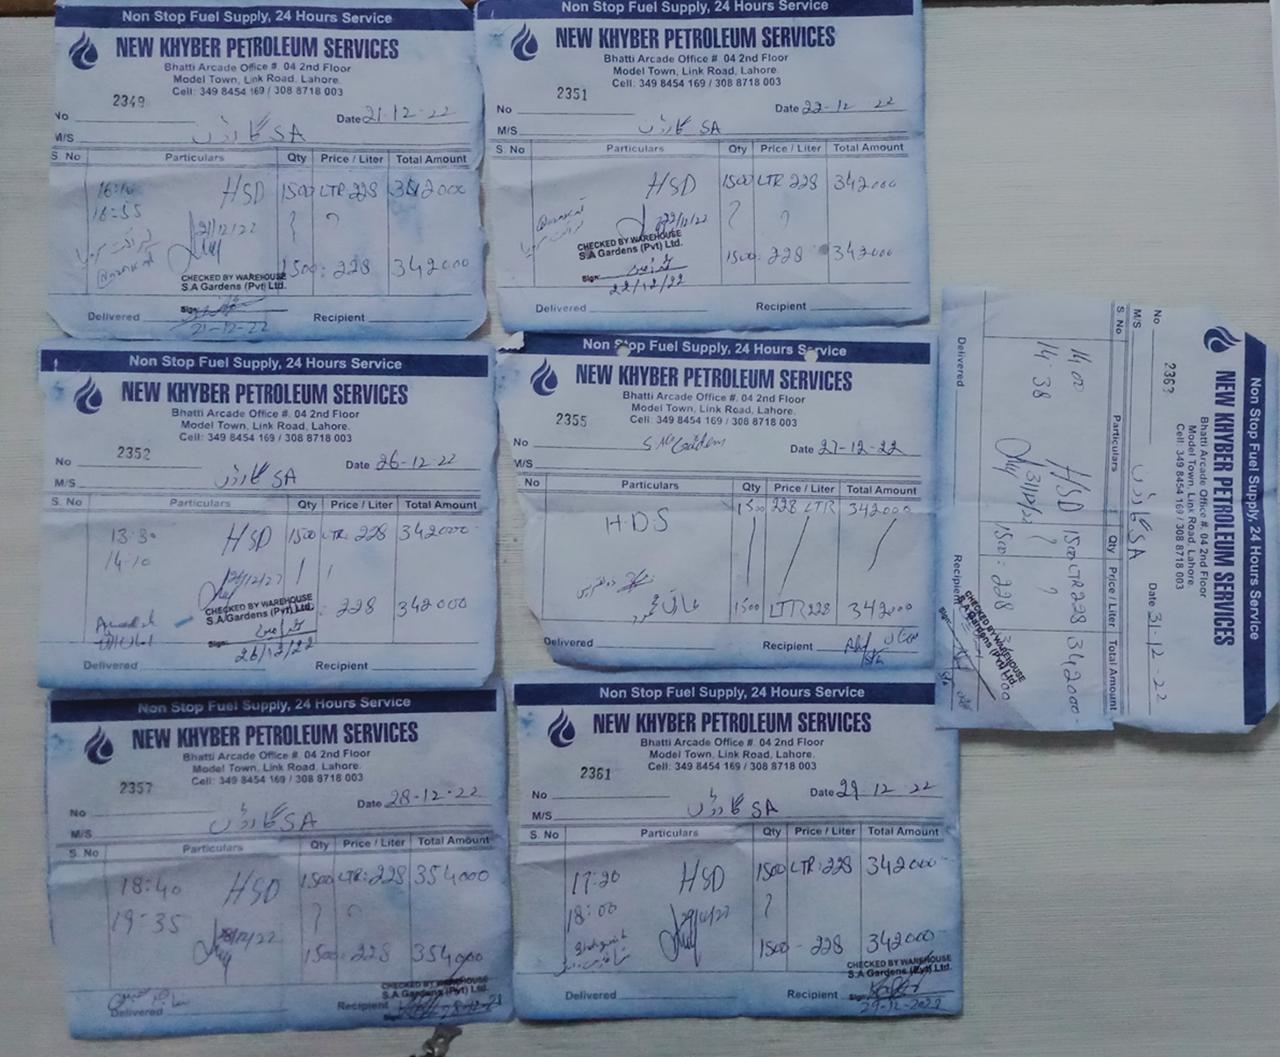 Non Stop Fuel Supply, 24 Hours Service
NEW KHYBER PETROLEUM SERVICES
Bhatti Arcade Office #. 04 2nd Floor
Model Town, Link Road, Lahore.
Cell: 349 8454 169 / 308 8718 003
2349
No Date 21-12-22
M/S گارڈن SA
S. No Particulars Qty Price / Liter Total Amount
16:10 HSD 1500 LTR 228 342000
16:55
21/12/22
1500: 228 342000
CHECKED BY WAREHOUSE
S.A Gardens (Pvt) Ltd.
Sign:
Delivered Recipient
21-12-22
Non Stop Fuel Supply, 24 Hours Service
NEW KHYBER PETROLEUM SERVICES
Bhatti Arcade Office #. 04 2nd Floor
Model Town, Link Road, Lahore.
Cell: 349 8454 169 / 308 8718 003
2351
No Date 22-12-22
M/S گارڈن SA
S. No Particulars Qty Price / Liter Total Amount
HSD 1500 LTR 228 342000
22/12/22
CHECKED BY WAREHOUSE
S.A Gardens (Pvt) Ltd.
1500: 228 342000
Sign:
22/12/22
Delivered Recipient
Non Stop Fuel Supply, 24 Hours Service
NEW KHYBER PETROLEUM SERVICES
Bhatti Arcade Office #. 04 2nd Floor
Model Town, Link Road, Lahore.
Cell: 349 8454 169 / 308 8718 003
2352
No Date 26-12-22
M/S گارڈن SA
S. No Particulars Qty Price / Liter Total Amount
13:30 HSD 1500 LTR 228 342000
14:10
26/12/22
CHECKED BY WAREHOUSE
S.A Gardens (Pvt) Ltd.
: 228 342000
Sign:
26/12/22
Delivered Recipient
Non Stop Fuel Supply, 24 Hours Service
NEW KHYBER PETROLEUM SERVICES
Bhatti Arcade Office #. 04 2nd Floor
Model Town, Link Road, Lahore.
Cell: 349 8454 169 / 308 8718 003
2355
No Date 27-12-22
M/S
S. No Particulars Qty Price / Liter Total Amount
H.D.S 1500 228 LTR 342000
1500 LTR 228 342000
Delivered Recipient
Non Stop Fuel Supply, 24 Hours Service
NEW KHYBER PETROLEUM SERVICES
Bhatti Arcade Office #. 04 2nd Floor
Model Town, Link Road, Lahore
Cell: 349 8454 169 / 308 8718 003
2363
No Date 31-12-22
M/S گارڈن SA
S. No Particulars Qty Price / Liter Total Amount
14:00 HSD 1500 LTR 228 342000
14:38
31/12/22
1500: 228
CHECKED BY WAREHOUSE
S.A Gardens (Pvt) Ltd.
Sign:
Delivered Recipient
Non Stop Fuel Supply, 24 Hours Service
NEW KHYBER PETROLEUM SERVICES
Bhatti Arcade Office #. 04 2nd Floor
Model Town, Link Road, Lahore.
Cell: 349 8454 169 / 308 8718 003
2357
No Date 28-12-22
M/S گارڈن SA
S. No Particulars Qty Price / Liter Total Amount
18:40 HSD 1500 LTR: 228 354000
19-35
28/12/22
1500: 228 354000
CHECKED BY WAREHOUSE
S.A Gardens (Pvt) Ltd.
Delivered Recipient
Sign:
Non Stop Fuel Supply, 24 Hours Service
NEW KHYBER PETROLEUM SERVICES
Bhatti Arcade Office #. 04 2nd Floor
Model Town, Link Road, Lahore.
Cell: 349 8454 169 / 308 8718 003
2361
No Date 29-12-22
M/S گارڈن SA
S. No Particulars Qty Price / Liter Total Amount
17:20 HSD 1500 LTR: 228 342000
18:00
1500 - 228 342000
CHECKED BY WAREHOUSE
S.A Gardens (Pvt) Ltd.
Delivered Recipient Sign:
29-12-2022